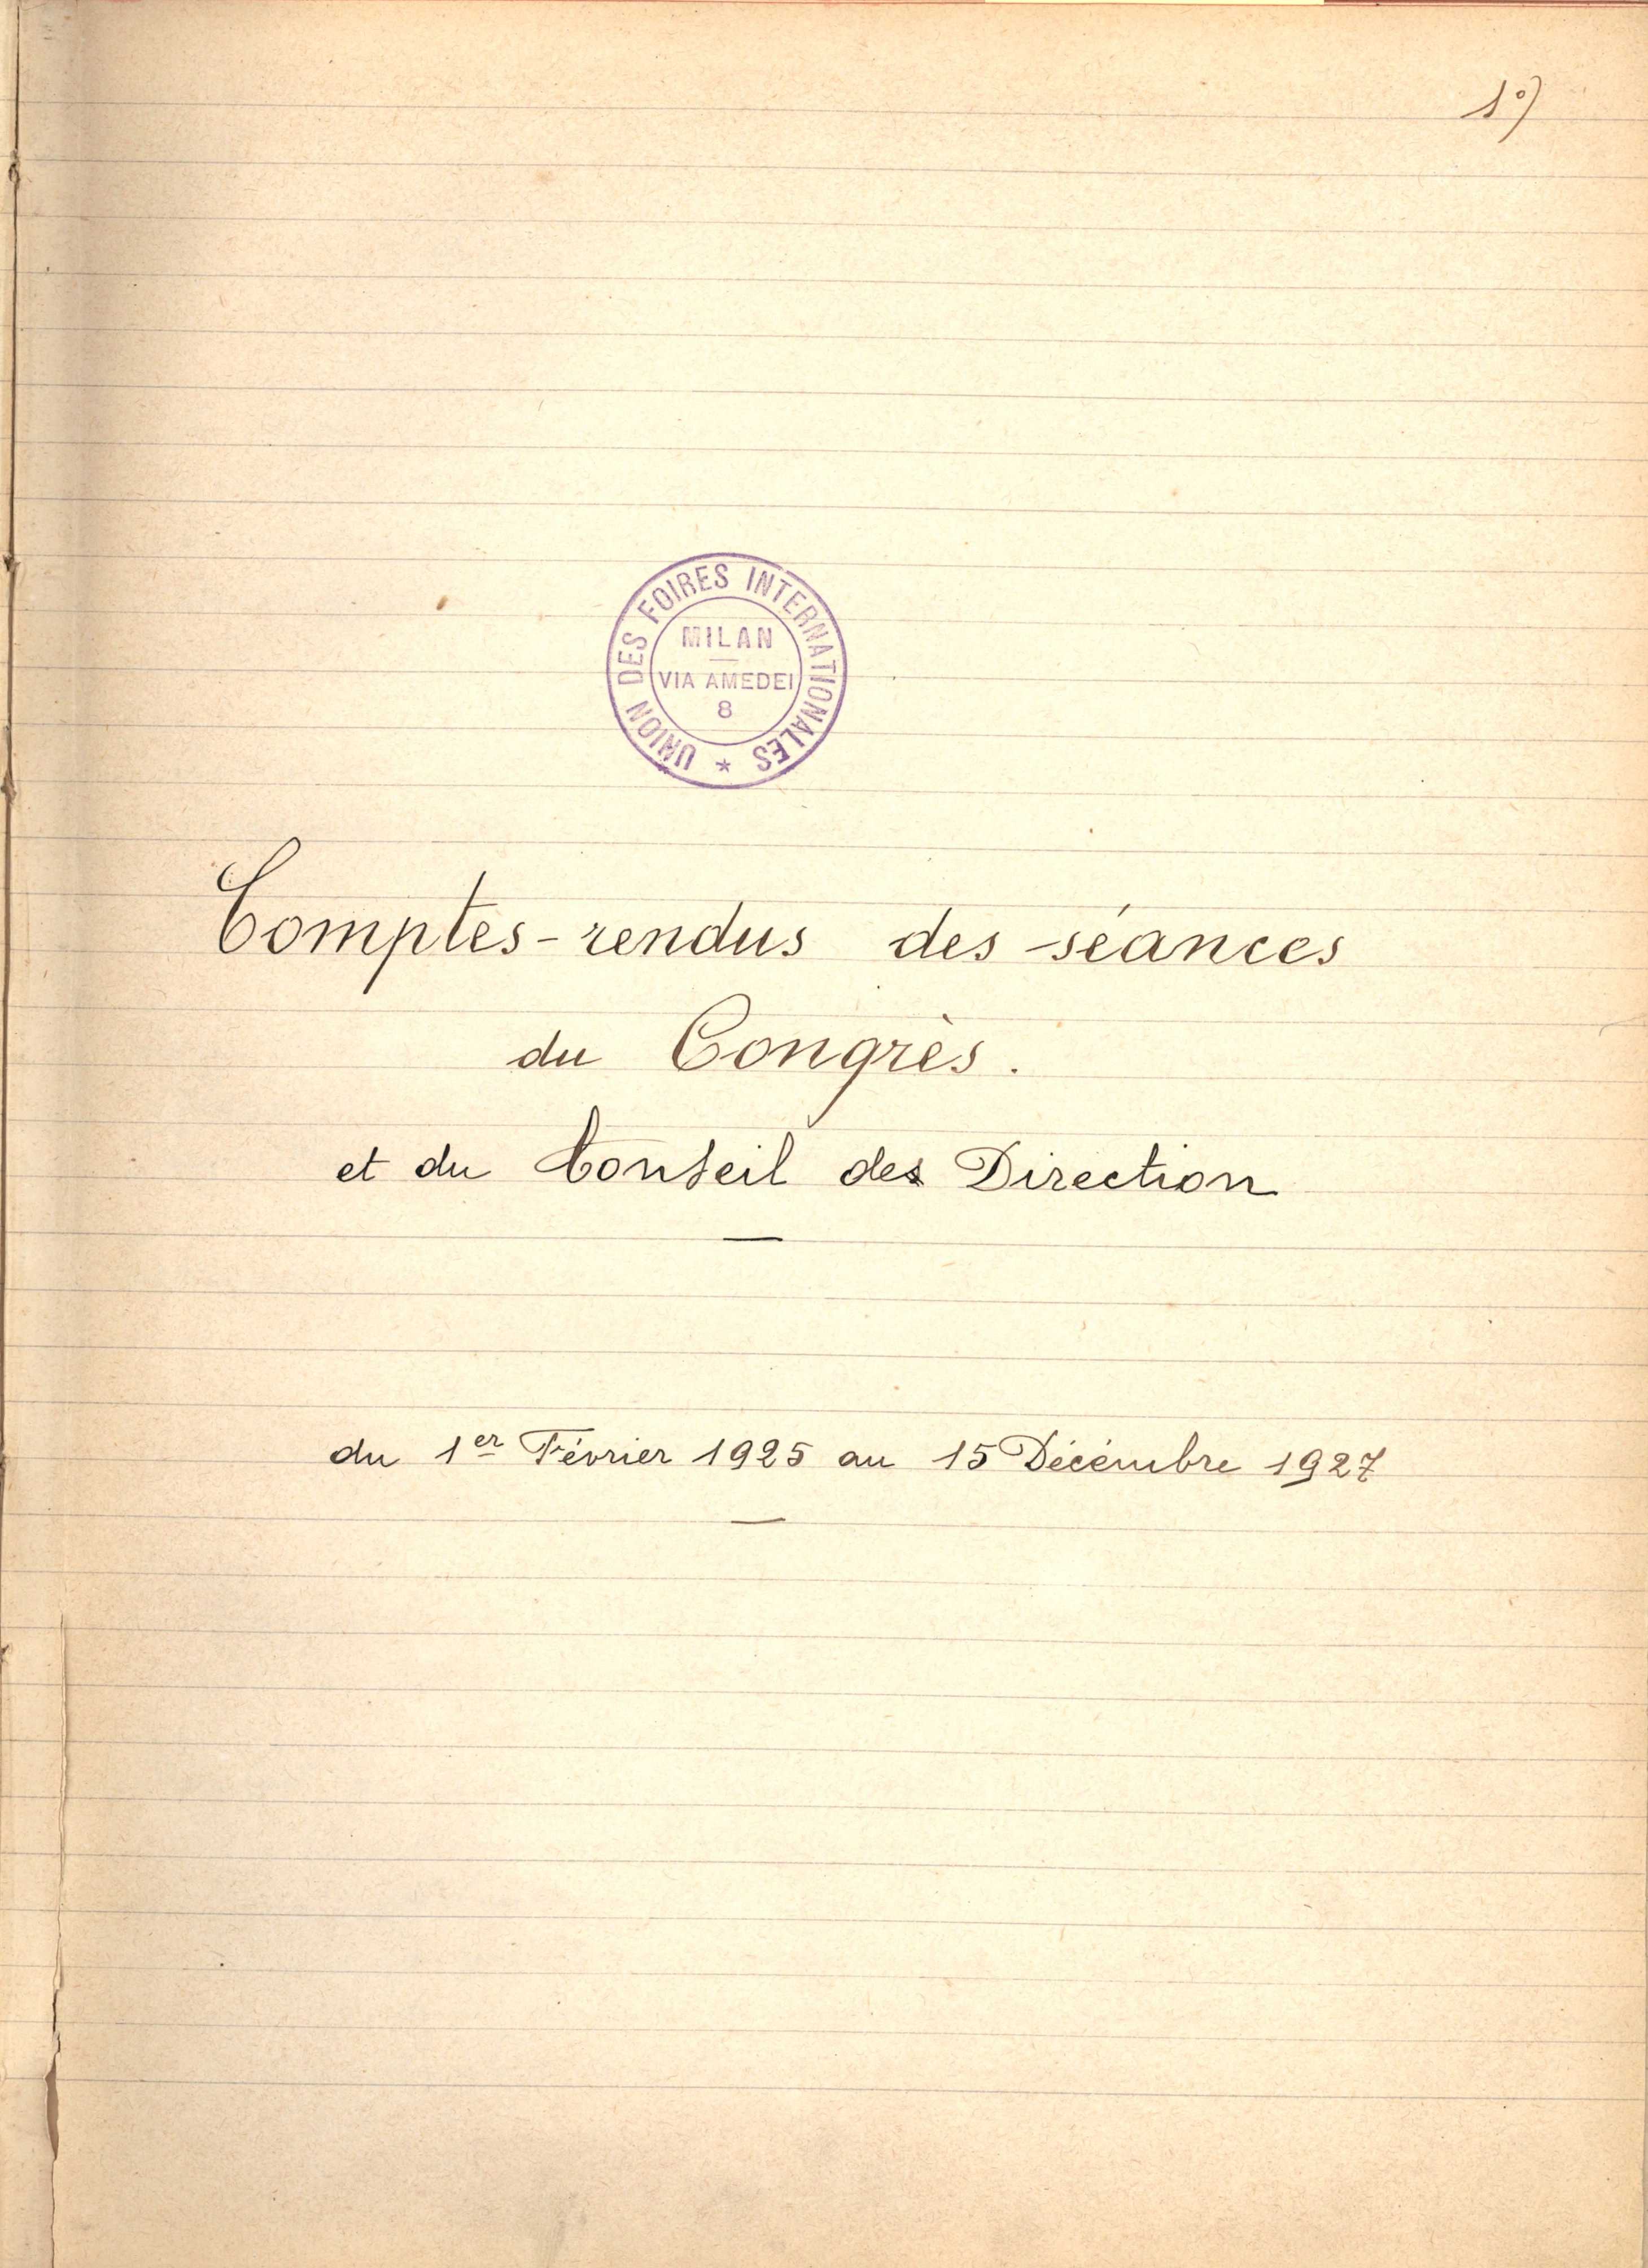 1°)
UNION DES FOIRES INTERNATIONALES *
MILAN
VIA AMEDEI
8
Comptes-rendus des séances
du Congrès.
et du Conseil des Direction
du 1er Février 1925 au 15 Décémbre 1927